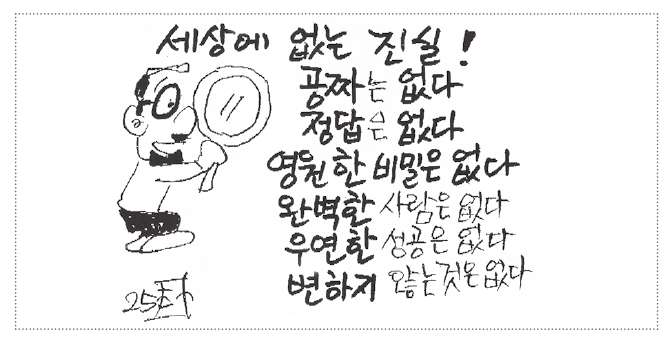 세상에 없는 진실!
공짜는 없다
정답은 없다
영원한 비밀은 없다
완벽한 사람은 없다
우연한 성공은 없다
변하지 않는것은 없다
25